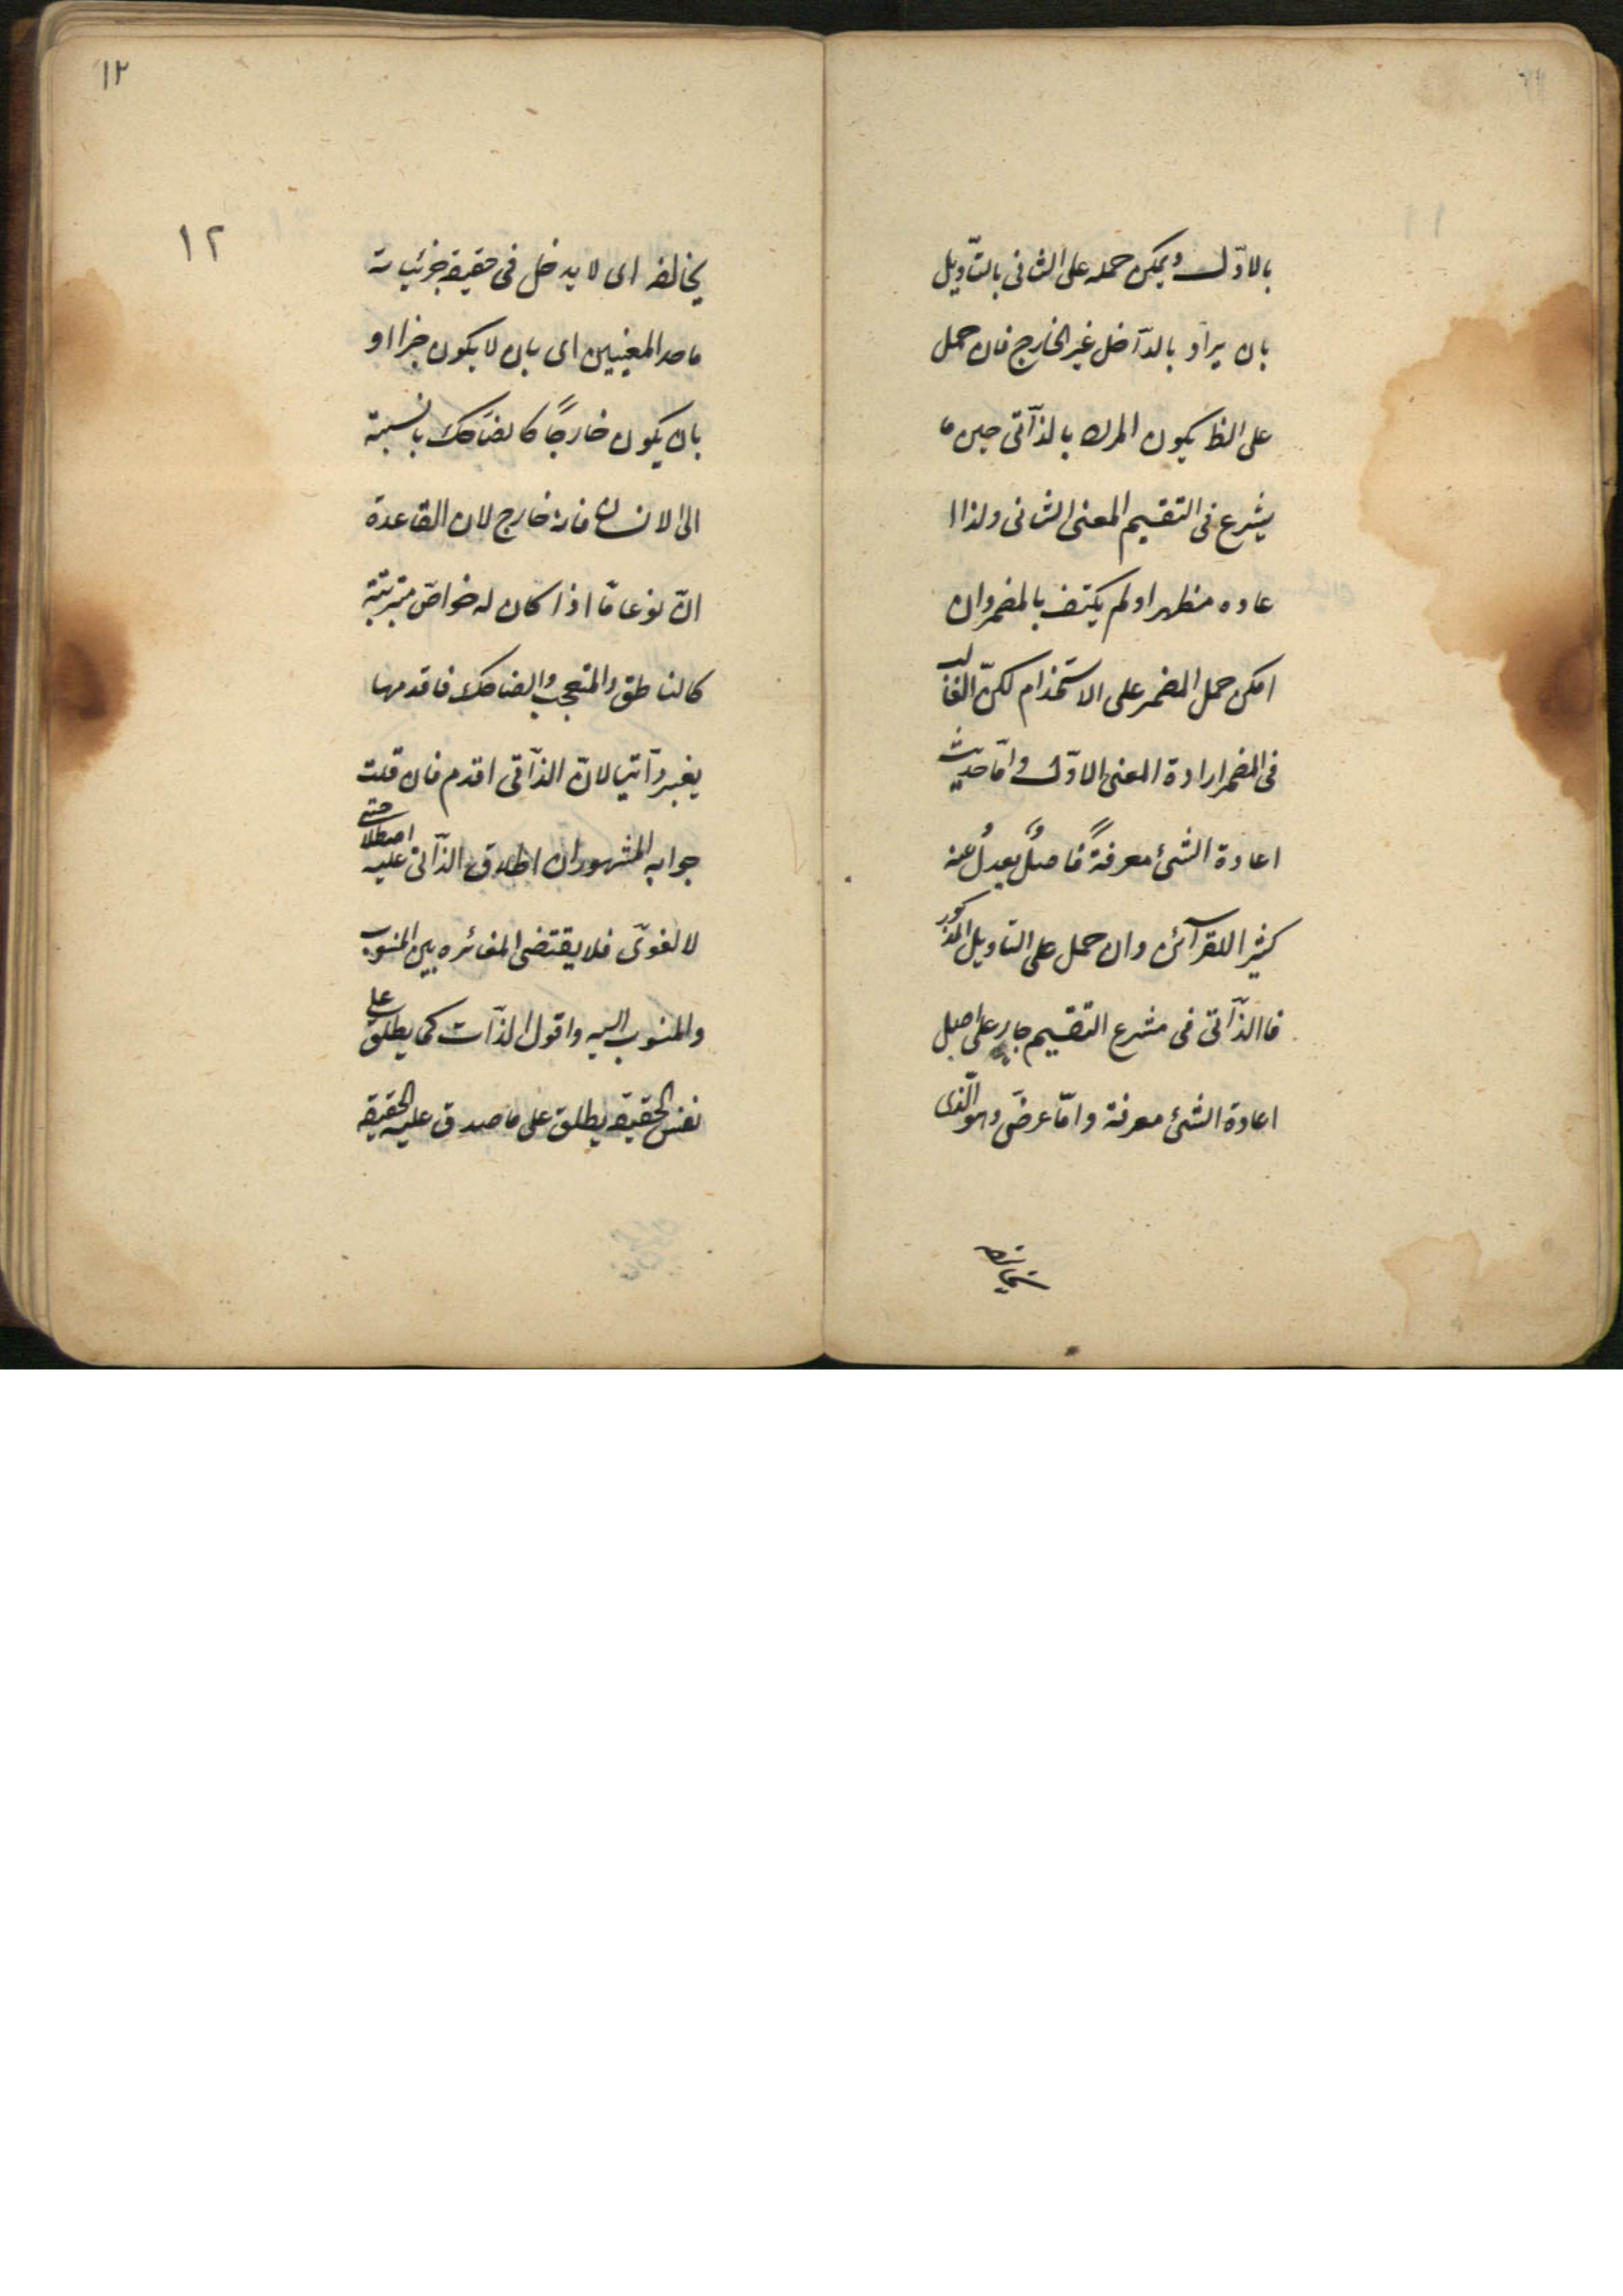 بالاوّل ويمكن حمله على الثانى بالتّأويل
بان يراد بالدّاخل غير الخارج فان حمل
على الظ يكون المراد بالذّاتى حين ما
يشرع فى التقسيم المعنى الثانى ولذا ا
عاده مظهرا ولم يكتف بالمضمر وان
امكن حمل المضمر على الاستخدام لكنّ الغالب
فى المضمر ارادة المعنى الاوّل وامّا حديث
اعادة الشئ معرفةً فاصلٌ يعدلُ عنه
كثيرا للقرآئن وان حمل على التاويل المذكور
فاالذّاتى فى مشرع التقسيم جار على اصل
اعادة الشئ معرفة وامّا عرضى وهو الّذى
يخالفه
١٢
١٢
يخالفه اى لا يدخل فى حقيقة جزئياته
باحد المعنيين اى بان لا يكون جزا او
بان يكون خارجًا كالضاحك بالنسبة
الى الانسان فانه خارج لان القاعدة
انّ نوعا مّا اذا كان له خواصّ مترتبة
كالناطق والمتعجب والضاحك فاقدمها
يعتبر ذآتيا لانّ الذّاتى اقدم فان قلت
جوابه المشهور ان اطلاق الذّاتى عليه اصطلاحى
لا لغوىّ فلا يقتضى المغائره بين المنسوب
والمنسوب اليه واقول الذّات كما يطلق على
نفس الحقيقه يطلق على ما صدق عليه الحقيقه